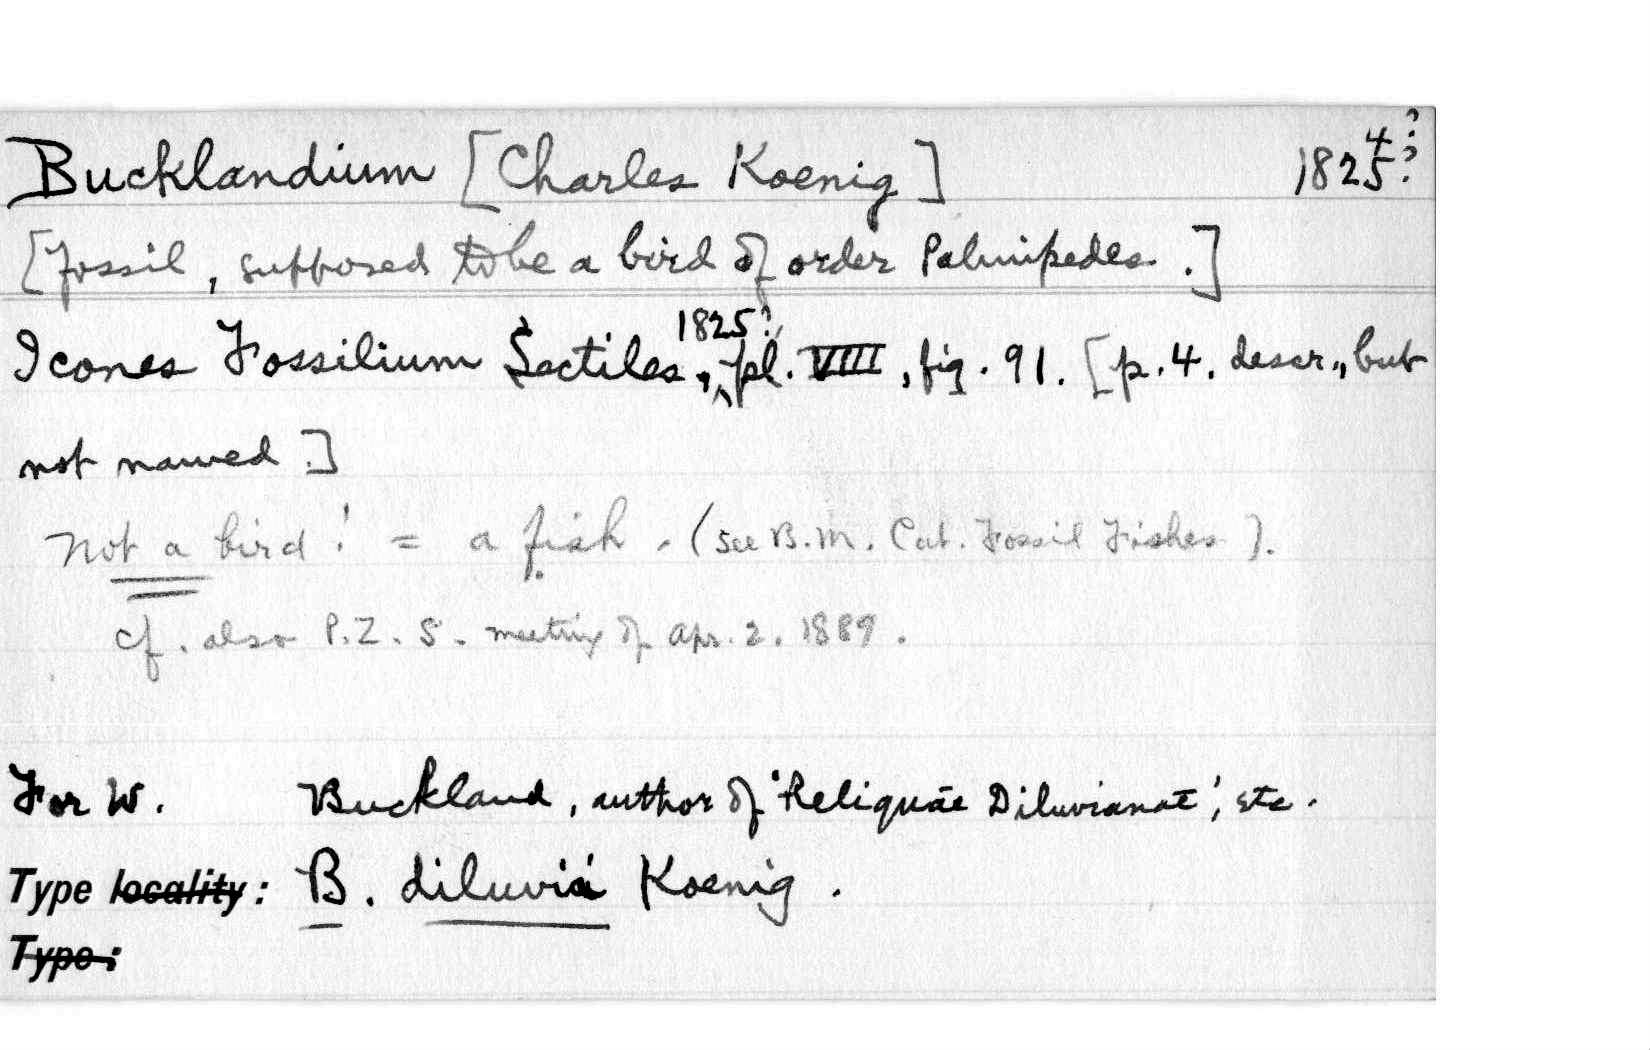 Bucklandium [Charles Koenig] 1825? 4?
[Fossil, supposed to be a bird of order Palmipedes.]
Icones Fossilium Sectiles, 1825?, pl. VIII, fig. 91. [p. 4. descr., but
not named.]
Not a bird! = a fish. (see B.M. Cat. Fossil Fishes).
cf. also P.Z.S. meeting of Apr. 2. 1889.
For W. Buckland, author of 'Reliquae Diluvianae', etc.
Type locality: B. diluvii Koenig.
Type: